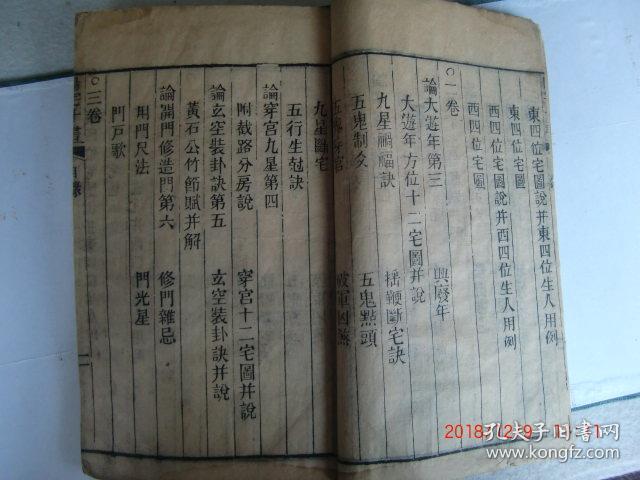 東四位宅圖說并東四位生人用例
東四位宅圖
西四位宅圖說并西四位生人用例
西四位宅圖
○一卷
論大遊年第三 興廢年
大遊年方位十二宅圖并說
九星禍福訣 搖鞭斷宅訣
五鬼制 五鬼點頭
九星斷宅
五行生尅訣
論穿宮九星第四
附截路分房說 穿宮十二宅圖并說
論玄空裝卦訣第五 玄空裝卦訣并說
黃石公竹節賦并解
論開門修造門第六 修門雜忌
門尺法 門光星
門戶歌
○三卷
目錄
一
2018
孔夫子旧書网